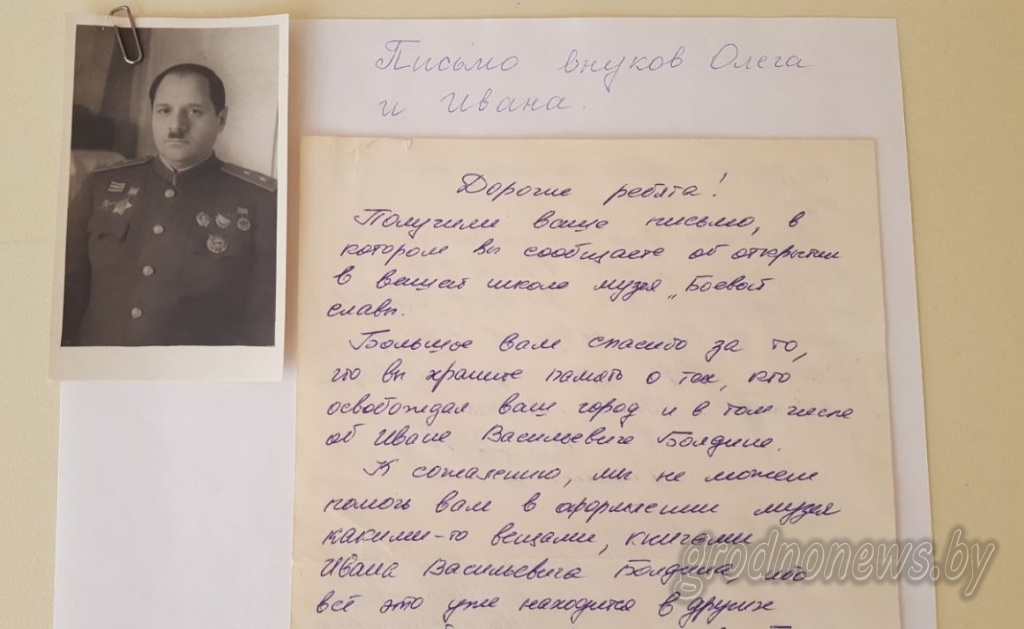 Письмо внуков Олега
и Ивана.
Дорогие ребята!
Получили ваше письмо, в
котором вы сообщаете об открытии
в вашей школе музея „Боевой
славы.
Большое вам спасибо за то,
что вы храните память о тех, кто
освобождал ваш город и в том числе
об Иване Васильевиче Болдине.
К сожалению, мы не можем
помочь вам в оформлении музея
какими-то вещами, книгами
Ивана Васильевича Болдина, ибо
всё это уже находится в других
grodnonews.by